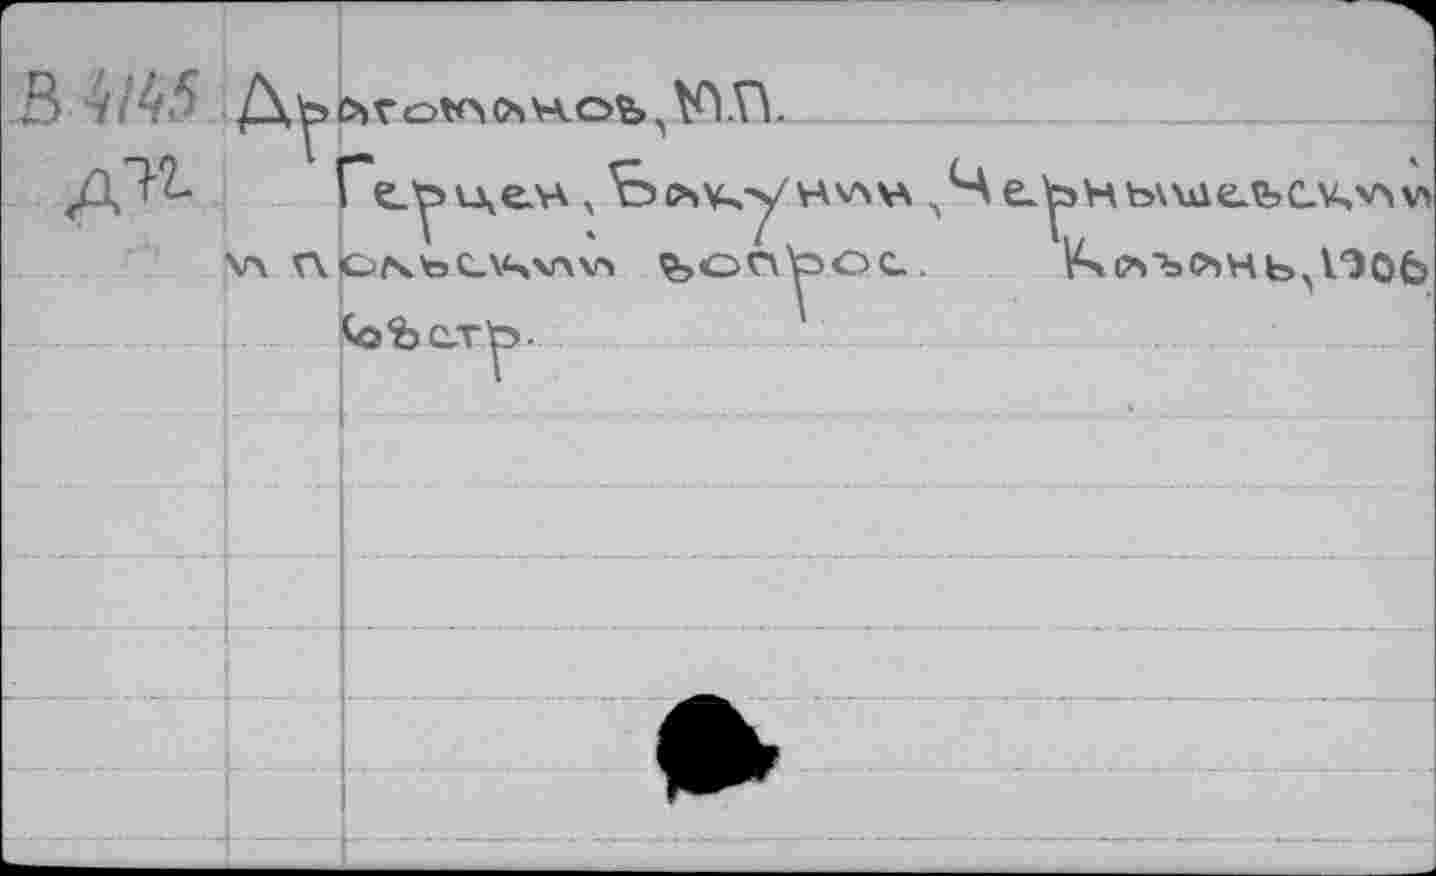 В 4/45 Драгоманов, М.П.
Д72 Герцен, Бакунин, Чернышевский
и польский вопрос. Казань, 1906
63 стр.